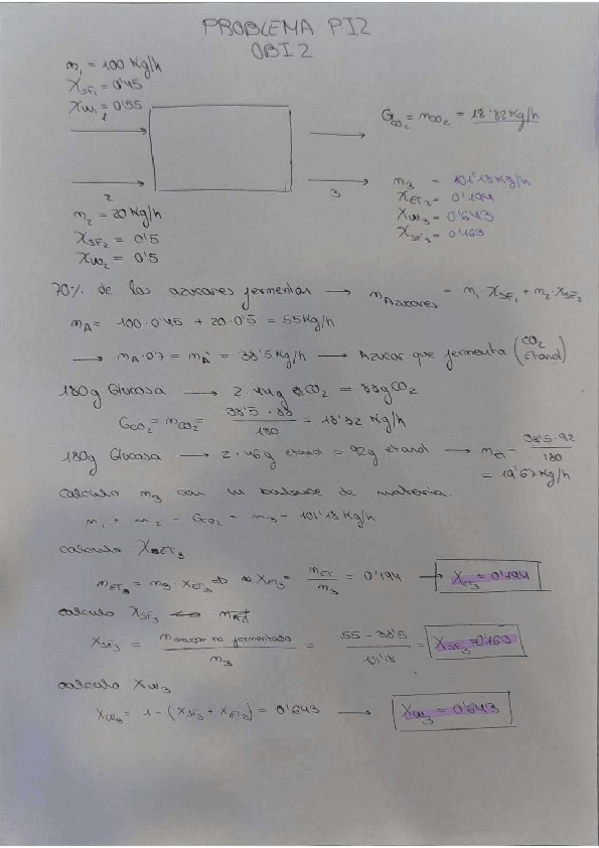 PROBLEMA PI2
OBI 2
m₁ = 100 Kg/h
X_SF₁ = 0'45
X_W₁ = 0'55
1
G_CO₂ = m_CO₂ = 18'82 Kg/h
2
3
m₃ = 101'18 Kg/h
X_ET₃ = 0'194
X_W₃ = 0'643
X_SF₃ = 0'163
m₂ = 20 Kg/h
X_SF₂ = 0'5
X_W₂ = 0'5
70% de los azucares fermentan → m_Azucares = m₁·X_SF₁ + m₂·X_SF₂
m_A = 100·0'45 + 20·0'5 = 55 Kg/h
→ m_A·0'7 = m_A' = 38'5 Kg/h → Azucar que fermenta (CO₂ etanol)
180g Glucosa → 2·44g CO₂ = 88g CO₂
G_CO₂ = m_CO₂ = 38'5·88 / 180 = 18'82 Kg/h
180g Glucosa → 2·46g etanol = 92g etanol → m_et = 38'5·92 / 180
= 19'67 Kg/h
calculo m₃ con un balance de materia.
m₁ + m₂ - G_CO₂ = m₃ = 101'18 Kg/h
calculo X_ET₃
m_ET₃ = m₃·X_ET₃ ⇒ X_ET₃ = m_ET / m₃ = 0'194 → X_ET₃ = 0'194
calculo X_SF₃
X_SF₃ = m azucar no fermentado / m₃ = 55 - 38'5 / 101'18 = X_SF₃ = 0'163
calculo X_W₃
X_W₃ = 1 - (X_SF₃ + X_ET₃) = 0'643 → X_W₃ = 0'643